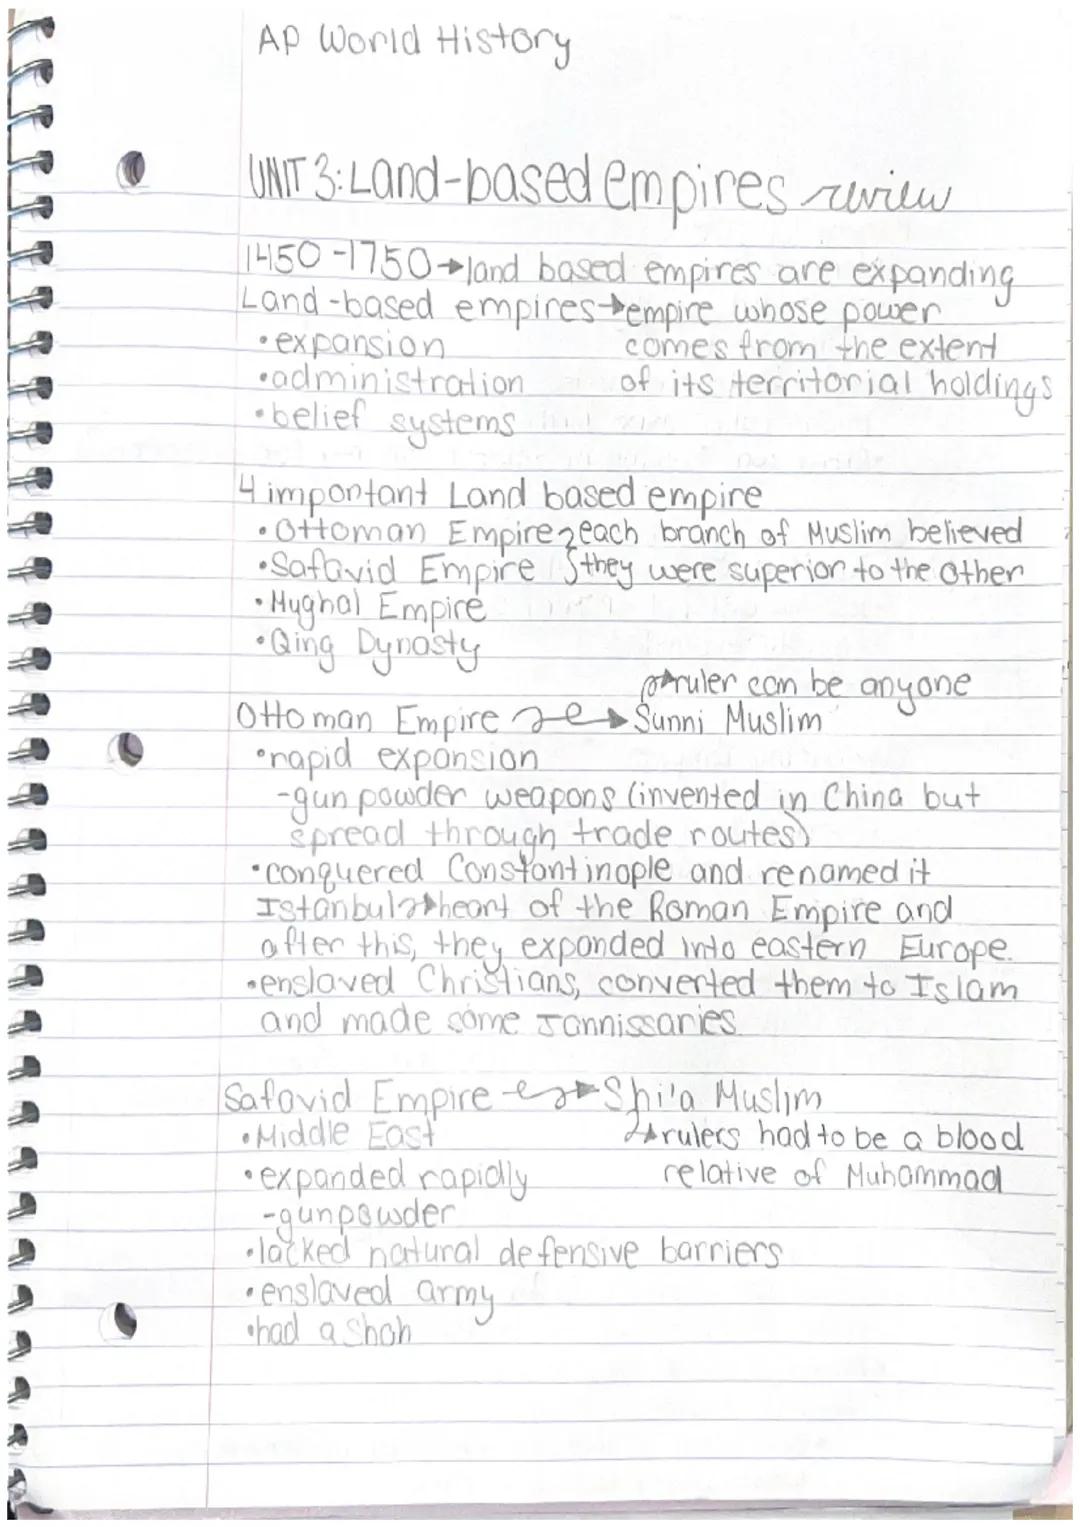 AP World History
UNIT 3: Land-based empires review
1450-1750→land based empires are expanding
Land-based empires→empire whose power
•expansion comes from the extent
•administration of its territorial holdings
•belief systems
4 important Land based empire
•Ottoman Empire each branch of Muslim believed
•Safavid Empire they were superior to the other
•Mughal Empire
•Qing Dynasty
→ruler can be anyone
Ottoman Empire → Sunni Muslim
•rapid expansion
-gun powder weapons (invented in China but
spread through trade routes)
•conquered Constantinople and renamed it
Istanbul→heart of the Roman Empire and
after this, they expanded into eastern Europe.
•enslaved Christians, converted them to Islam
and made some Jannissaries
Safavid Empire → Shi'a Muslim
•Middle East →rulers had to be a blood
•expanded rapidly relative of Muhammad
-gunpowder
•lacked natural defensive barriers
•enslaved army
•had a Shah